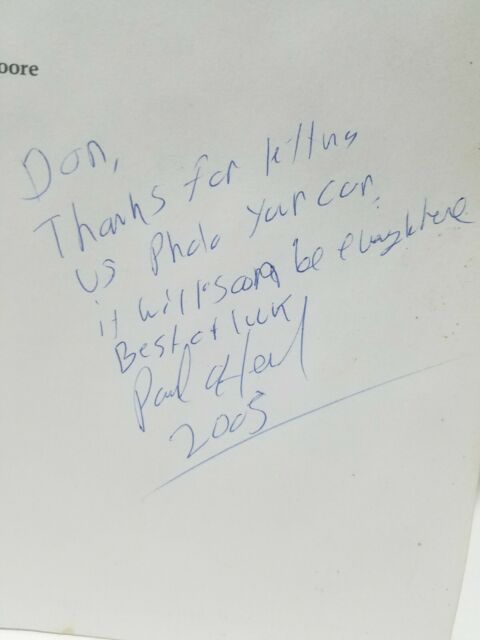 oore
Don,
Thanks for letting
us Photo your car.
it will soon be everywhere
Best of luck
Paul
2005